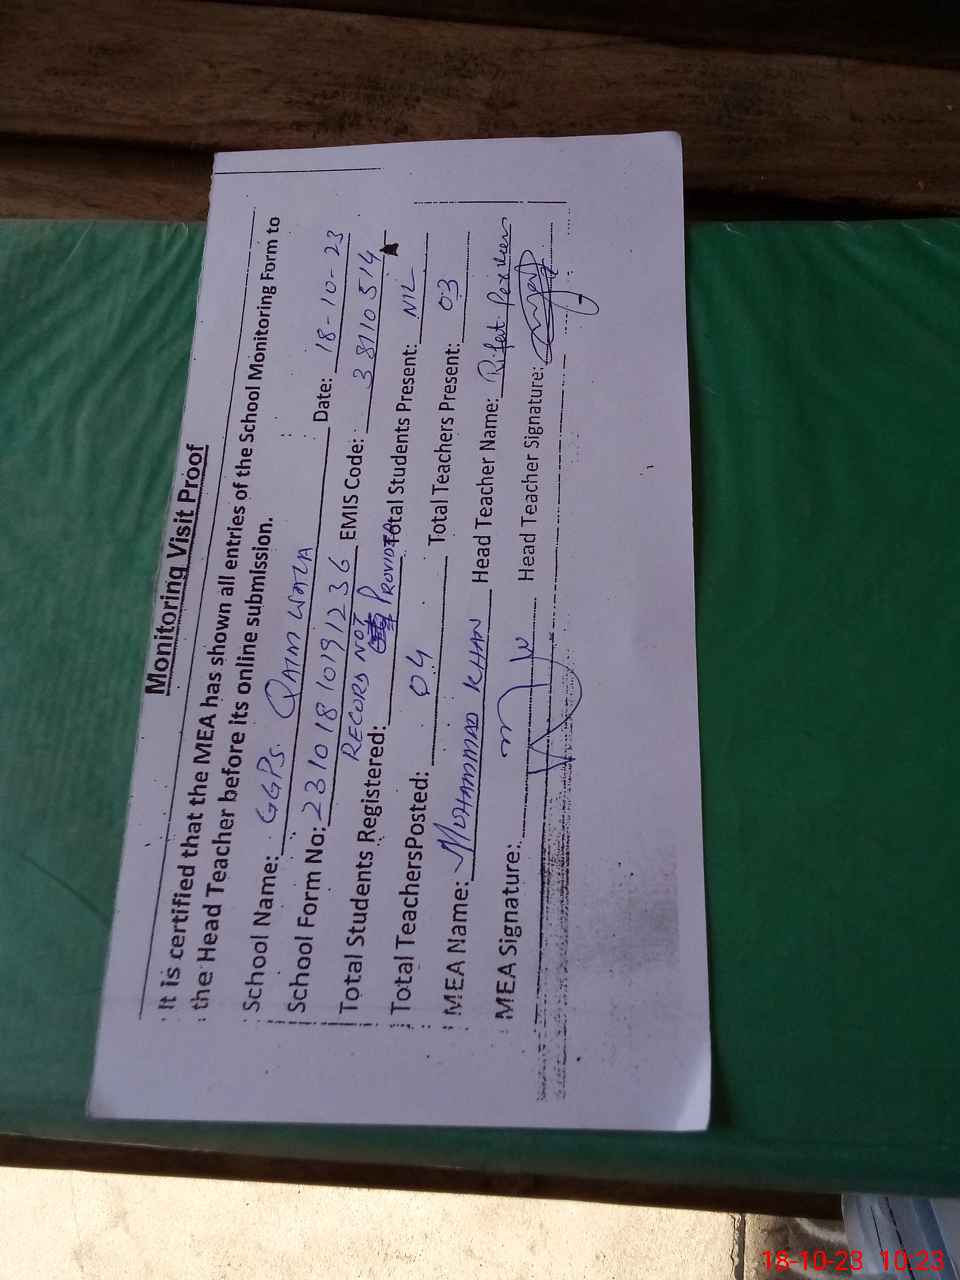 Monitoring Visit Proof
It is certified that the MEA has shown all entries of the School Monitoring Form to
the Head Teacher before its online submission.
School Name: GGPS. QAIM WALA Date: 18-10-23
School Form No: 23101810191236 EMIS Code: 38110514
Total Students Registered: RECORD NOT PROVIDED Total Students Present: NIL
Total TeachersPosted: 04 Total Teachers Present: 03
MEA Name: MUHAMMAD KHAN Head Teacher Name: Rifat Perveen
MEA Signature: Head Teacher Signature:
18-10-23 10:23